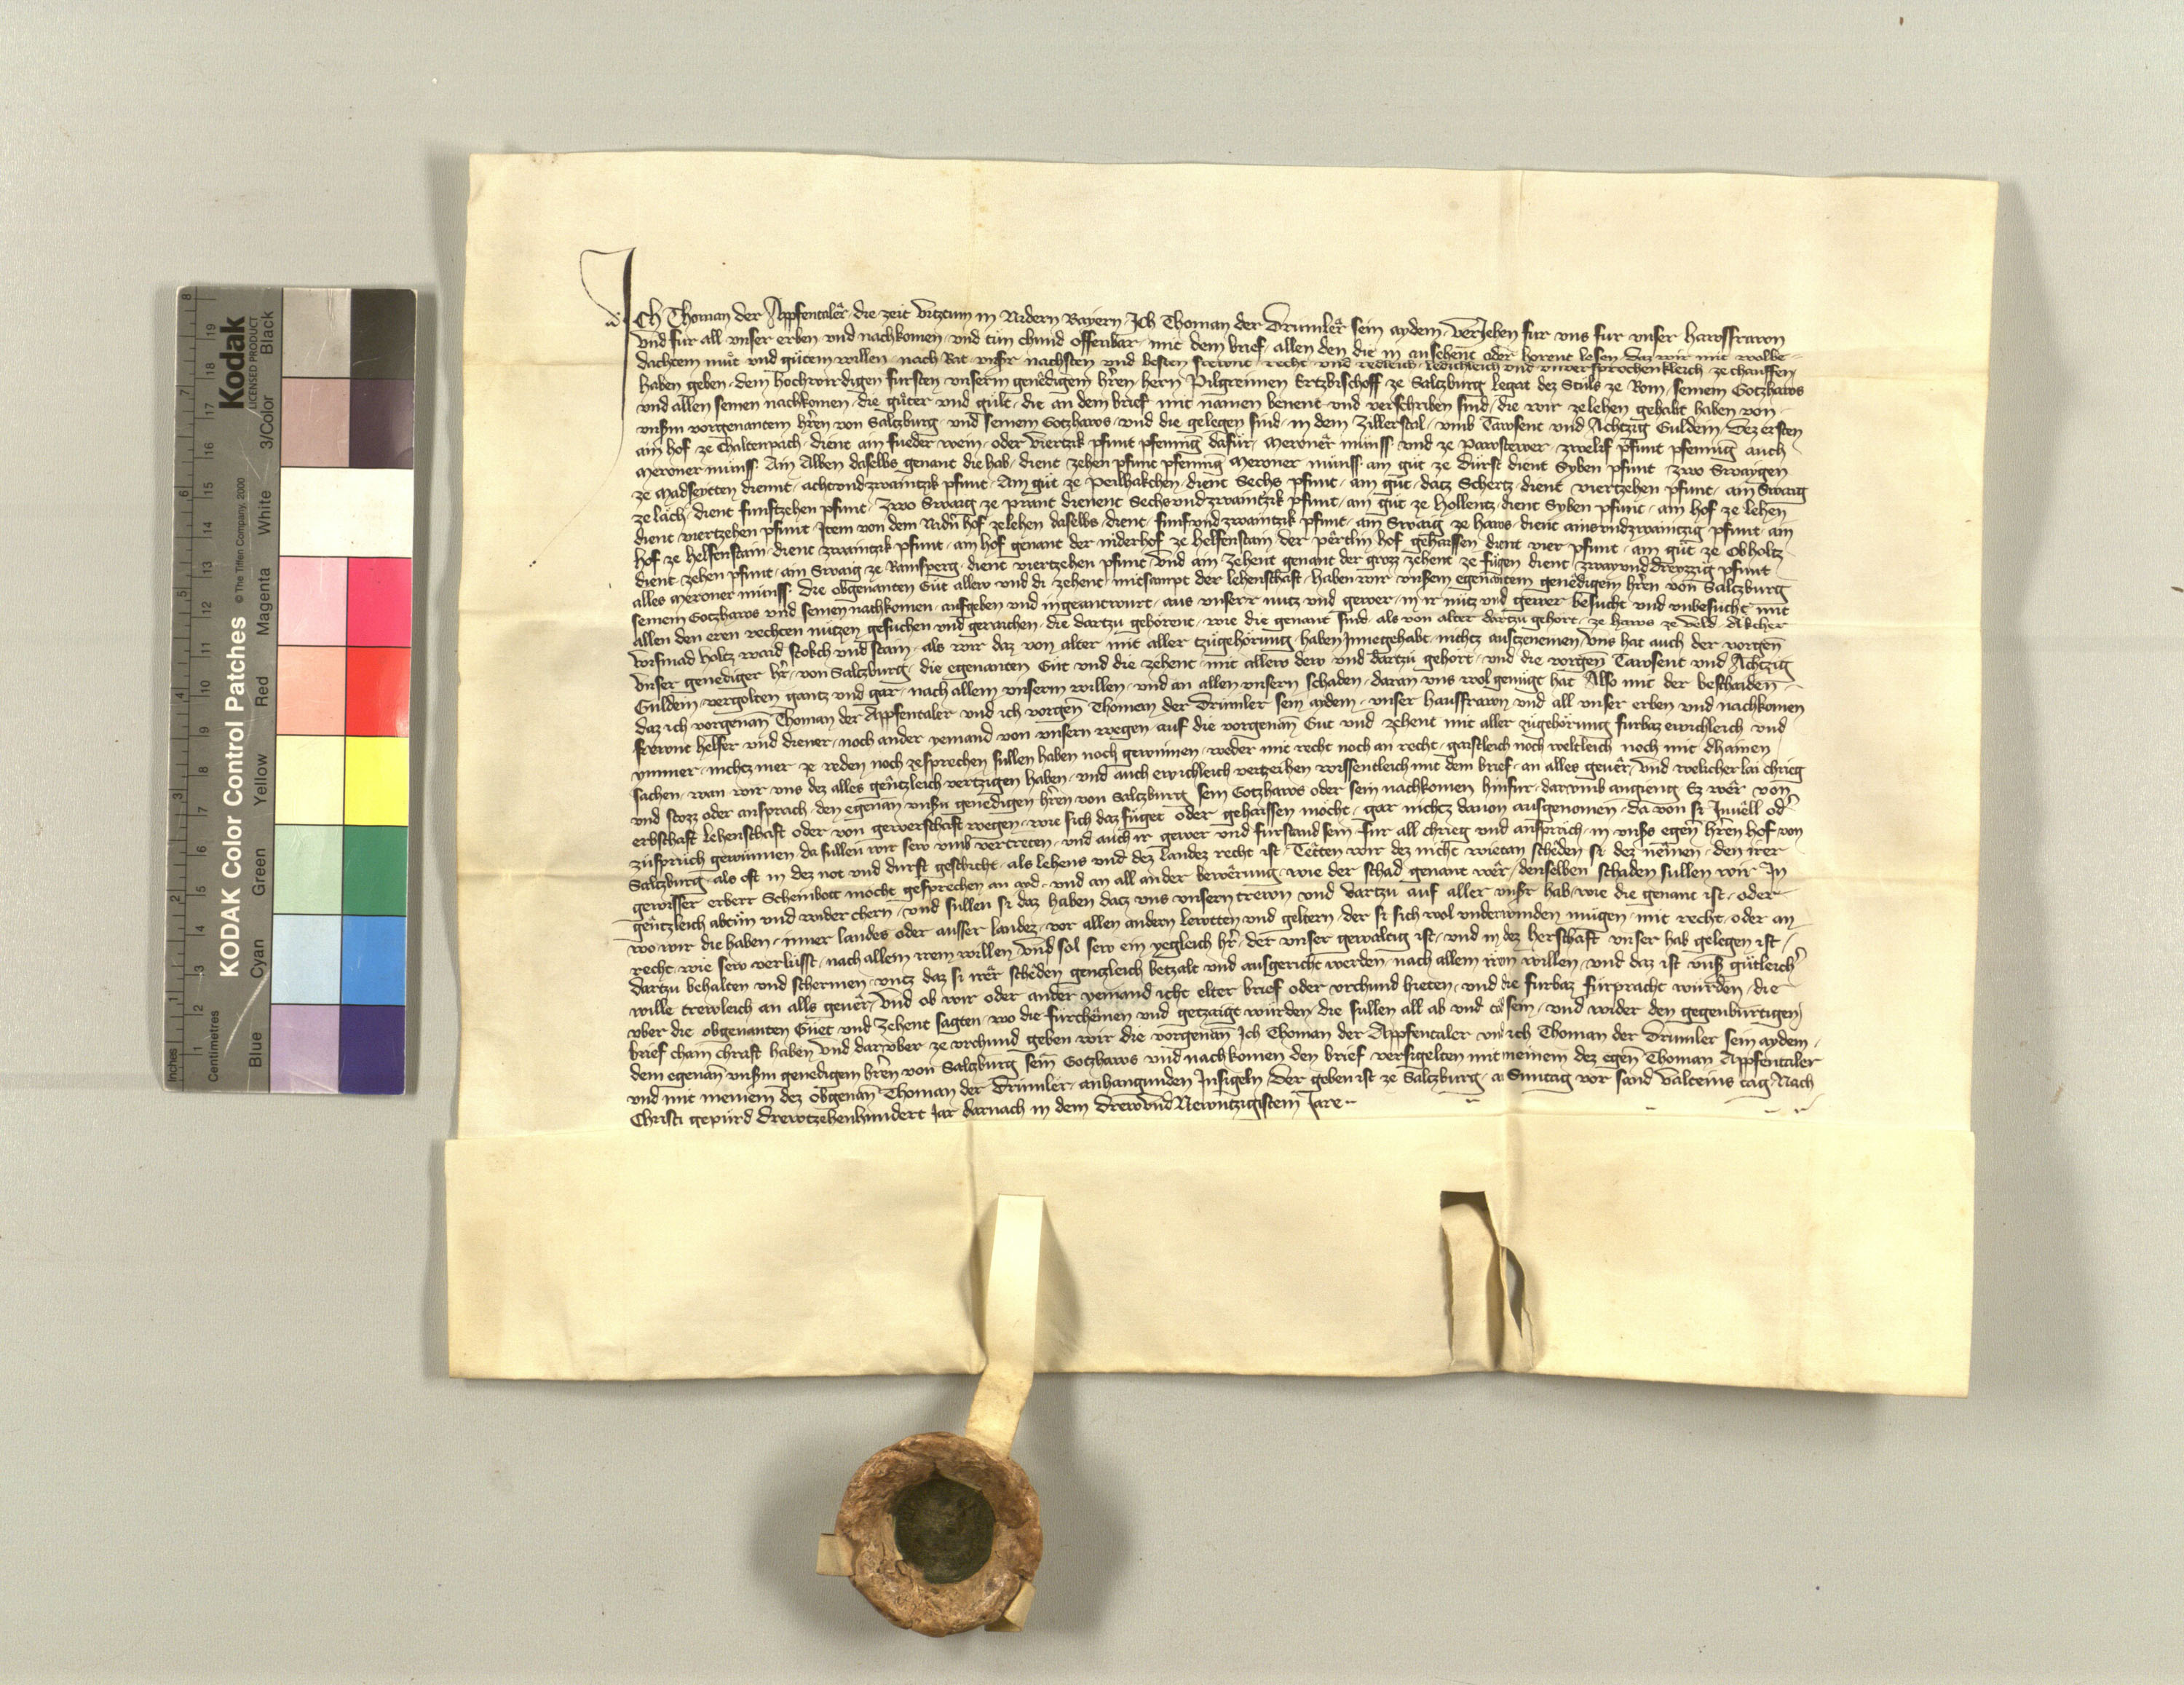 Ich Thoman der Appfentaler die zeit vitztum in Nidern Bayern Ich Thoman der Drumler sein aydem veriehen fur uns fur unser hawsfrawn
und fur all unser erben und nachkomen und tun chund offenbar mit dem brief allen den die in ansehent oder horent lesen daz wir mit wolbe-
dachtem mut und gutem willen nach Rat unsr nachsten und besten frewnt recht und redleich ledichleich und unversprochenkleich ze chauffen
haben geben dem hochwirdigen fursten unserm genedigem hren hern Pilgreimen Ertzbischoff ze Saltzburg legat dez Stuls ze Rom seinem Gotzhaws
und allen seinen nachkomen die guter und gult die an dem brief mit namen benent und verschriben sind die wir ze lehen gehabt haben von
unserm vorgenantem hren von Saltzburg und seinem Gotzhaws und die gelegen sind in dem Zillerstal umb Tawsent und Achtzig Guldein Dez ersten
ain hof ze Chaltenpach dient ain fueder wein oder viertzik pfunt pfennig dafur Meroner munss und ze Pawstewer zwelif pfunt pfennig auch
Meroner munss Ain Alben daselbs genant die hab dient zehen pfunt pfennig Meroner munss ain gut ze Durst dient Syben pfunt zwo Swaygen
ze Madseytten dient achtundzwaintzik pfunt Ain gut ze Peilhakchen dient Sechs pfunt ain gut datz Schertz dient viertzehen pfunt ain Swaig
ze lach dient funftzehen pfunt zwo Swaig ze Prant dienent Sechsundzwaintzik pfunt ain gut ze Hollentz dient Syben pfunt ain hof ze lehen
dient viertzehen pfunt Item von dem Nidn hof ze lehen daselbs dient funfundzwaintzik pfunt ain Swaig ze haws dient ainsundzwaintzig pfunt ain
hof ze Helfenstain dient zwaintzik pfunt ain hof genant der niderhof ze helfenstain der pertlin hof gehaissen dient vier pfunt ain gut ze Obholtz
dient zehen pfunt ain Swaig ze Ramsperg dient viertzehen pfunt Und ain Zehent genant der grozz zehent ze fugen dient zwayunddreyzzig pfunt
alles Meroner munss Die obgenanten Gut allew und di zehent mitsampt der lehenschaft haben wir unserm egenantem genedigem hren von Saltzburg
seinem Gotzhaws und seinen nachkomen aufgeben und ingeantwurt aus unserr nutz und gewer in ir nutz und gewer besucht und unbesucht mit
allen den eren rechten nutzen gesuchen und gemachen die dartzu gehorent wie die genant sind als von alter dartzu gehort ze haws ze veld Akcher
wismad holtz waid stokch und stain als wir daz von alter mit aller tzugehorung haben Innegehabt nichtz auszenemen Uns hat auch der vorgen
unser genediger hr von Saltzburg die egenanten Gut und die zehent mit allew dew und dartzu gehort und die vorgen Tawsent und Achtzig
Guldein vergolten gantz und gar nach allem unserm willen und an allen unsern schaden daran uns wol genugt hat Also mit der beschaiden
daz ich vorgenan Thoman der Appfentaler und ich vorgen Thoman der Drumler sein aydem unser hausfrawn und all unser erben und nachkomen
frewnt helfer und diener noch ander yemand von unsern wegen auf die vorgenan Gut und zehent mit aller zugehorung furbaz ewichleich und
ymmer nichtz mer ze reden noch ze sprechen sullen haben noch gewinnen weder mit recht noch an recht gaistleich noch weltleich noch mit dhainen
sachen wan wir uns dez alles gentzleich vertzigen haben und auch ewichleich vertzeihen wissentleich mit dem brief an alles gever Und welicherlai chrieg
und stozz oder ansprach den egenan unsn genedigen hren von Saltzburg sein Gotzhaws oder sein nachkomen hinfur darumb angieng Ez wer von
erbschaft lehenschaft oder von gewerschaft wegen wie sich daz fuget oder gehaissen mocht gar nichtz davon ausgenomen da von si Inuell od
zusprüch gewunnen da sullen wir sew umb vertreten und auch ir gewer und furstand sein fur all chrieg und ansprach in unsrs egen hren hof von
Saltzburg als oft in dez not und durft geschicht als lehens und dez landez recht ist Teten wir dez nicht wietan scheden si dez nemen den irer
gewisser erberr Scheinbott mocht gesprechen an ayd und an all ander bewerung wie der schad genant wer denselben schaden sullen wir In
gentzleich abtun und wider chern und sullen si daz haben datz uns unsern trewn und dartzu auf aller unsrr hab wie die genant ist oder
wo wir die haben inner landes oder ausser landez vor allen andern lewtten und geltern der si sich wol underwinden mugen mit recht oder an
recht wie sew verlusst nach allem irem willen und sol sew ein yegleich hr der unser gewaltig ist und in dez herschaft unser hab gelegen ist
dartzu behalten und schermen untz daz si irer scheden gentzleich betzalt und ausgericht werden nach allem irm willen und daz ist unsr gutleich
wille trewleich an alls gever Und ob wir oder ander yemand icht elter brief oder urchund hieten und die furbaz furpracht wurden die
uber die obgenanten Guet und Zehent sagten wo die furchemen und getzaigt wurden die sullen all ab und tod sein und wider den gegenburtigen
brief chain chraft haben Und daruber ze urchund geben wir die vorgenan Ich Thoman der Appfentaler und ich Thoman der Drumler sein aydem
dem egenan unserm genedigem hren von Saltzburg seim Gotzhaws und nachkomen den brief versigelten mit meinem dez egen Thoman Appfentaler
und mit meinem dez obgenan Thoman der Drumler anhangunden Insigeln Der geben ist ze Saltzburg an Suntag vor sand Valteins tag Nach
Christi gepurd Drewtzehenhundert Iar darnach in dem Drewundnewntzigistem Iare
KODAK Color Control Patches © The Tiffen Company, 2000 Kodak LICENSED PRODUCT
Blue Cyan Green Yellow Red Magenta White 3/Color Black
Inches 1 2 3 4 5 6 7 8
Centimetres 1 2 3 4 5 6 7 8 9 10 11 12 13 14 15 16 17 18 19